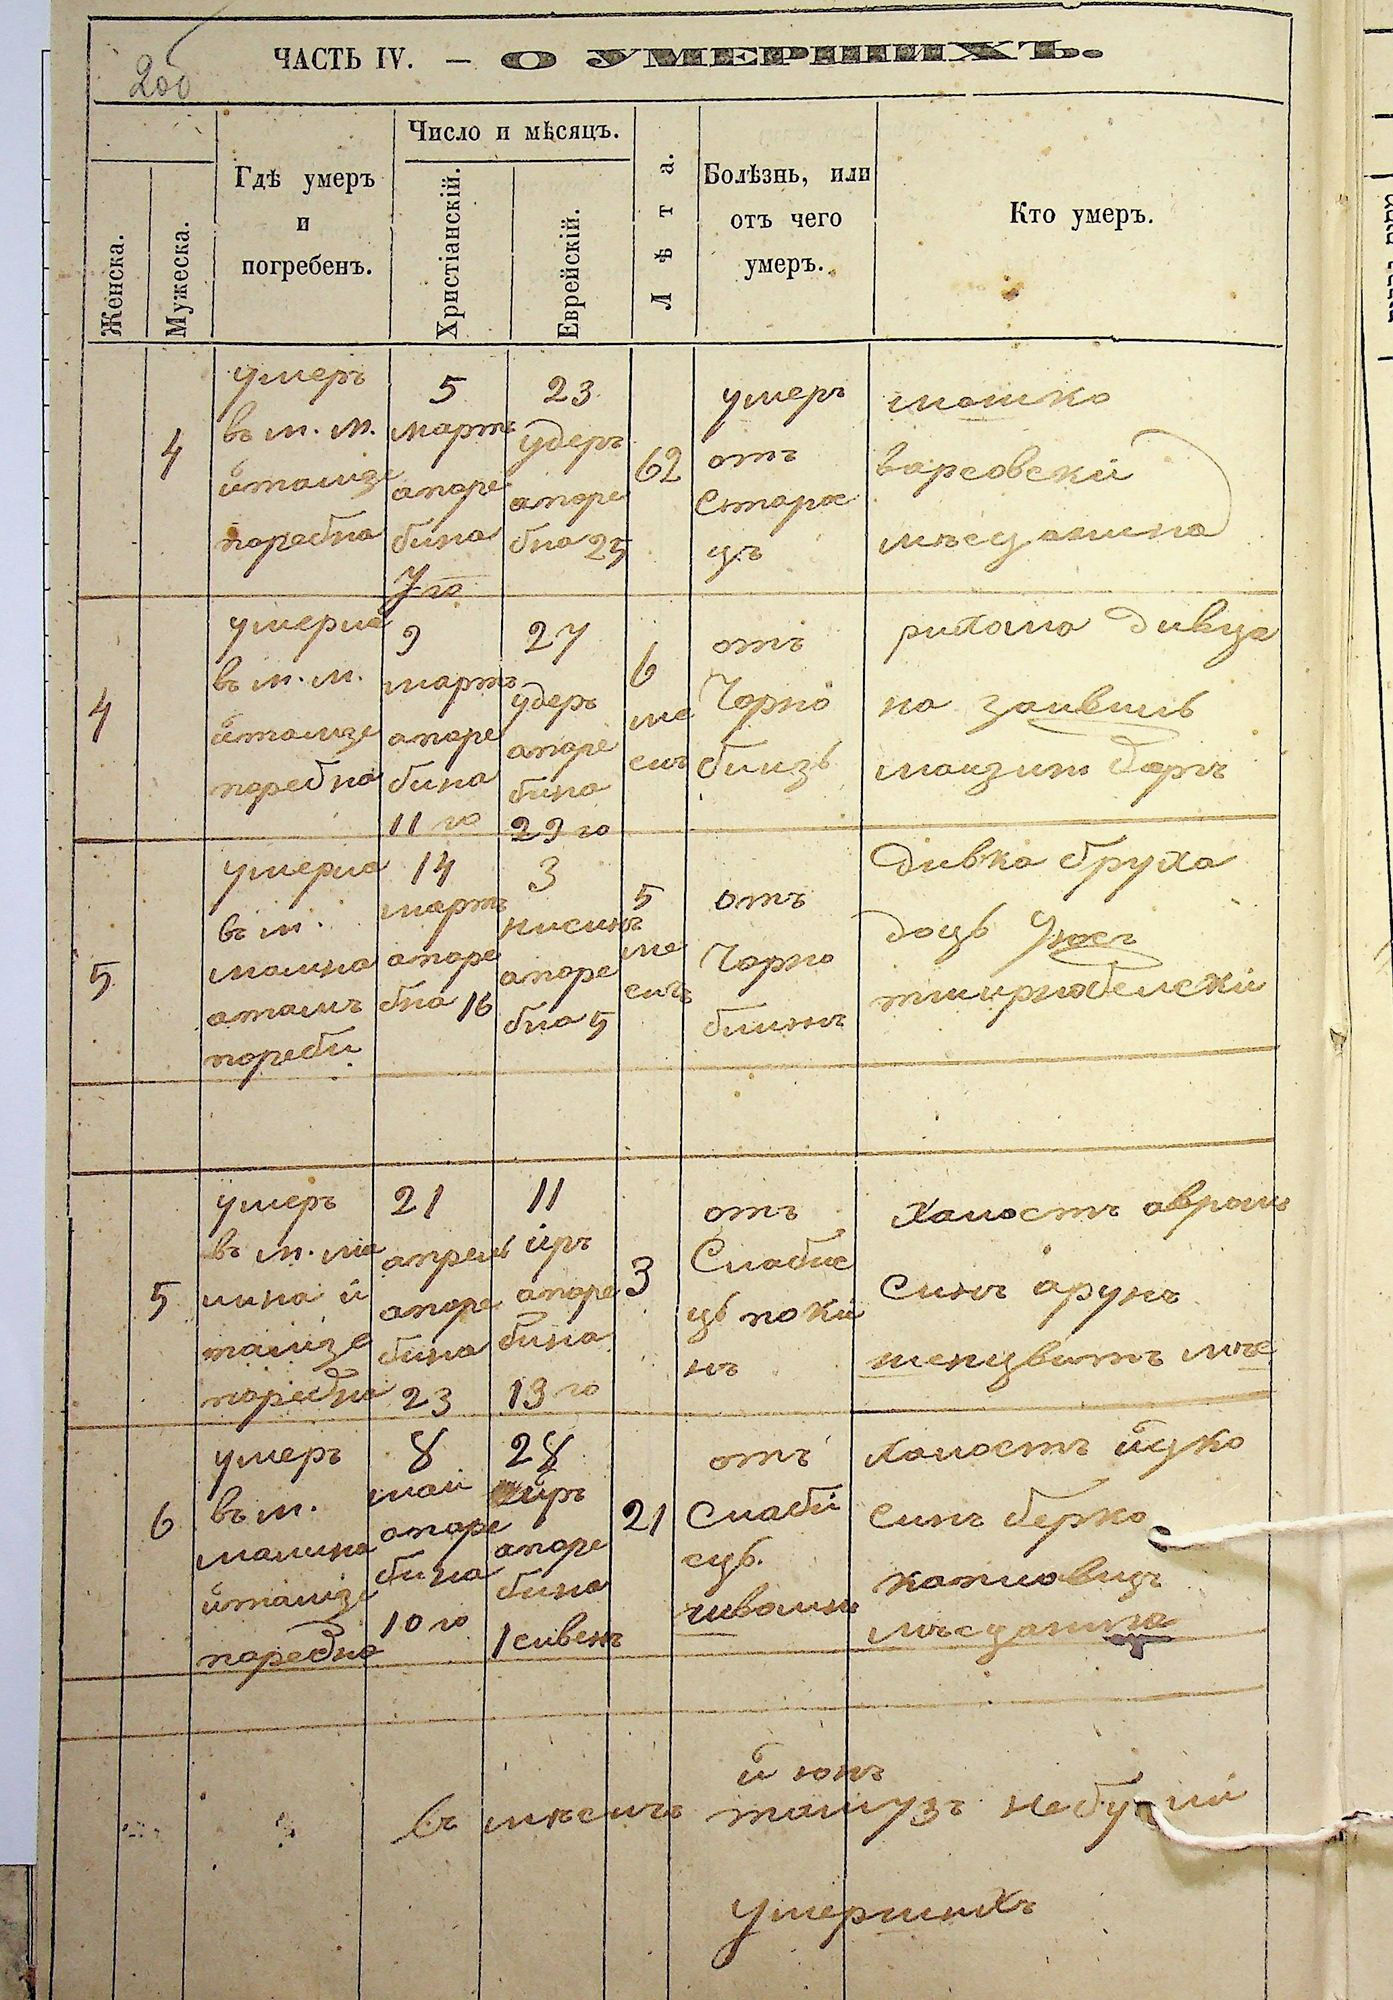 200
ЧАСТЬ IV. — О УМЕРШИХЪ.
Женска.
Мужеска.
Гдѣ умеръ
и
погребенъ.
Число и мѣсяцъ.
Христіанскій.
Еврейскій.
Лѣта.
Болѣзнь, или
отъ чего
умеръ.
Кто умеръ.
4
умеръ
въ м. м.
итамизе
паребна
5
мартъ
апоре
бина
7 го
23
удеръ
апоре
бна 25
62
умеръ
отъ
Старос
цъ
мошко
варсовски
мъсцанина
4
умерла
въ м. м.
итамизе
паребна
9
мартъ
апоре
бина
11 го
27
удеръ
апоре
бина
29 го
6
ме
сиъ
отъ
Чорно
близь
дивца
на
5
умерла
въ м.
малина
атамъ
пореби
14
мартъ
апоре
бна 16
3
нисинъ
апоре
бна 5
5
ме
сиъ
отъ
Чорно
блинъ
дивка бруха
доцъ
5
умеръ
въ м. ма
лина и
тамизе
паребна
21
апрель
апоре
бина
23
11
иръ
апоре
бина
13 го
3
отъ
Слабис
ць поки
нъ
Халостъ авромъ
Синъ арунъ
6
умеръ
въ м.
малина
итамизе
паребна
8
маи
апоре
бина
10 го
28
иръ
апоре
бина
1 сивенъ
21
отъ
Слаби
сць.
Халостъ ицко
Синъ берко
мъсцанина
и юнъ
въ мъсицъ тамузъ небули
умершихъ